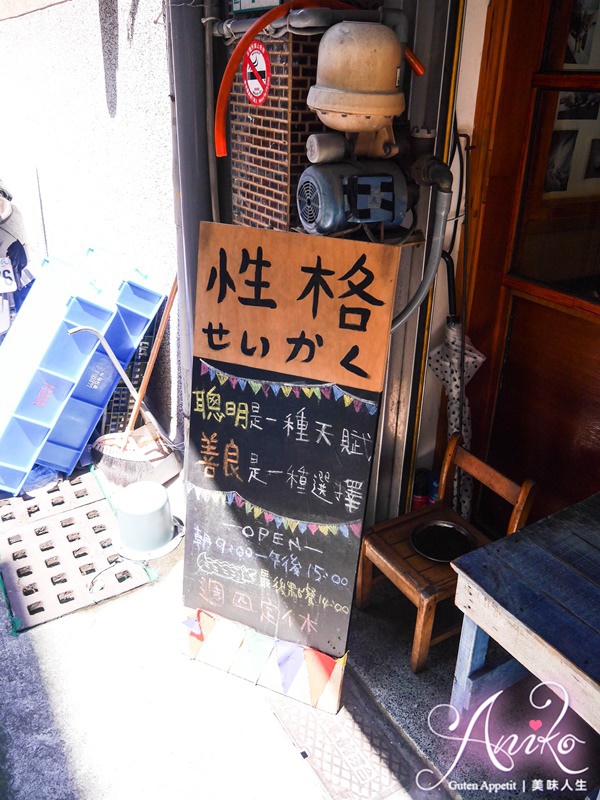 性格
せいかく
聰明是一種天賦
善良是一種選擇
—OPEN—
朝9:00—午後15:00
最後點餐14:00
週四定休
Aniko
Guten Appetit | 美味人生